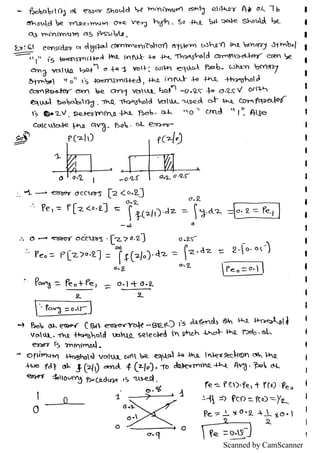 - Probability of error should be minimum only either A0 or Tb
should be maximum are very high. So the bit rate should be
as minimum as possible.
Ex: 61 consider a digital communication system when the binary symbol
"1" is transmitted the input to the Threshold comparator can be
any value betn 0 to 1 volt; with equal Prob. when binary
symbol "0" is transmitted, the input to the threshold
comparator can be any value betn -0.25 to 0.25V with
equal probability. The Threshold value used at the comparator
is 0.2V. Determine the Prob. of "0" and "1". Also
calculate the avg. Prob. of error
P(z/1) P(z/0)
1 2
0 0.2 1 -0.25 0.2 0.25
∴ 1 → error occurs [z<0.2]
Pe1 = P[z<0.2] = ∫ f(z/1).dz = ∫ 1.dz = 0.2 = Pe1
∴ 0 → error occurs [z>0.2]
Pe0 = P[z>0.2] = ∫ f(z/0).dz = ∫ 2.dz = 2.(0.05)
Pe0 = 0.1
∴ Pavg = Pe0+Pe1 / 2 = 0.1+0.2 / 2
Pavg = 0.15
→ Prob of error (Bit error rate - BER) is depends on the threshold
value. The threshold value selected in such that the Prob. of
error is minimal.
- optimum threshold value will be equal to the intersection of the
two Pdf of f(z/1) and f(z/0). To determine the Avg. Prob of
error following Procedure is used.
Pe = P(1).Pe1 + P(0).Pe0
1 0.8 1
∴ If → P(1) = P(0) = 1/2
0.2
0.1
Pe = 1/2 x 0.2 + 1/2 x 0.1
0 0.9 0
Pe = 0.15
Scanned by CamScanner